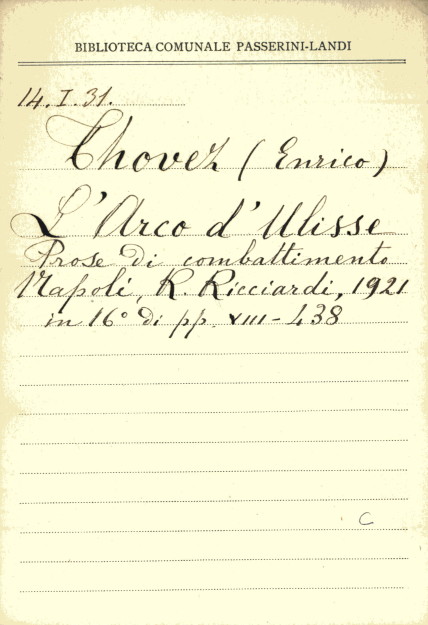 BIBLIOTECA COMUNALE PASSERINI-LANDI
14.I.31.
Thovez (Enrico)
L'Arco d'Ulisse
Prose di combattimento
Napoli, R. Ricciardi, 1921
in 16° di pp. XIII-438
C